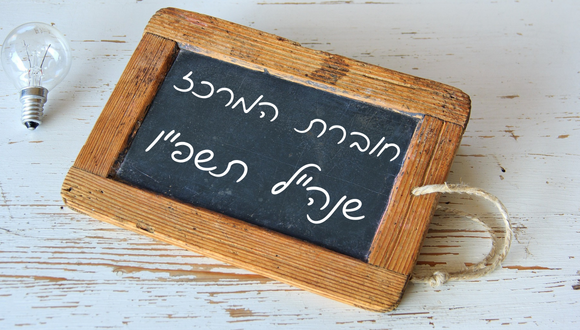 חוברת המרכז
שנה״ל תשפ״ן